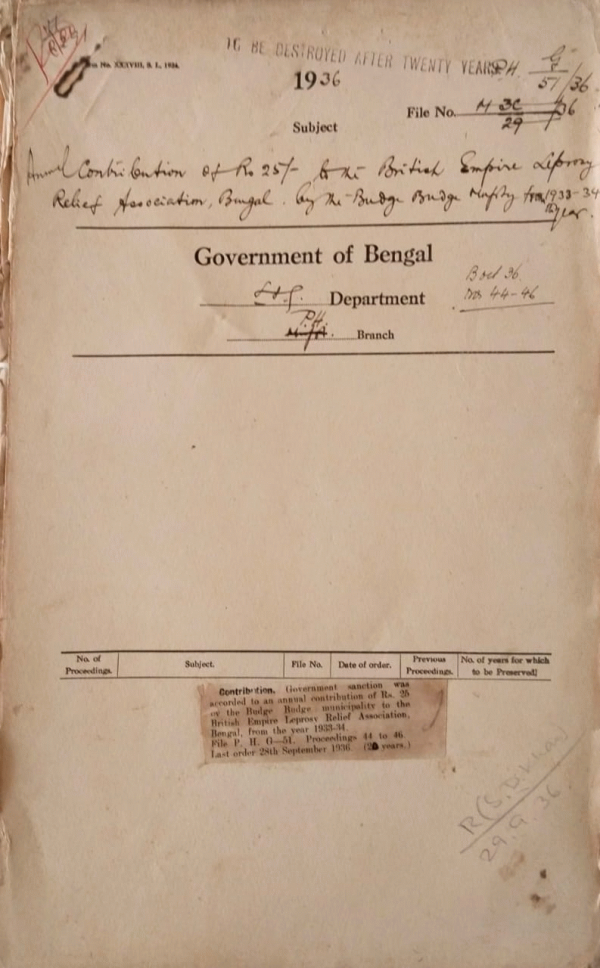 TO BE DESTROYED AFTER TWENTY YEARS
No. XXVIII, S. L., 1934.
1936
P.H. G/51/36
File No. M 3C/29/36
Subject
Annual Contribution of Rs 25/- to the British Empire Leprosy
Relief Association, Bengal. by the Budge Budge Mupty from 1933-34
year.
Government of Bengal
Department
B Oct 36.
nos 44-46
P.H.
Branch
No. of Proceedings. Subject. File No. Date of order. Previous Proceedings. No. of years for which to be Preserved.
Contribution. Government sanction was
accorded to an annual contribution of Rs. 25
by the Budge Budge municipality to the
British Empire Leprosy Relief Association,
Bengal, from the year 1933-34.
File P. H. G—51. Proceedings 44 to 46
Last order 28th September 1936. (20 years.)
29.9.36